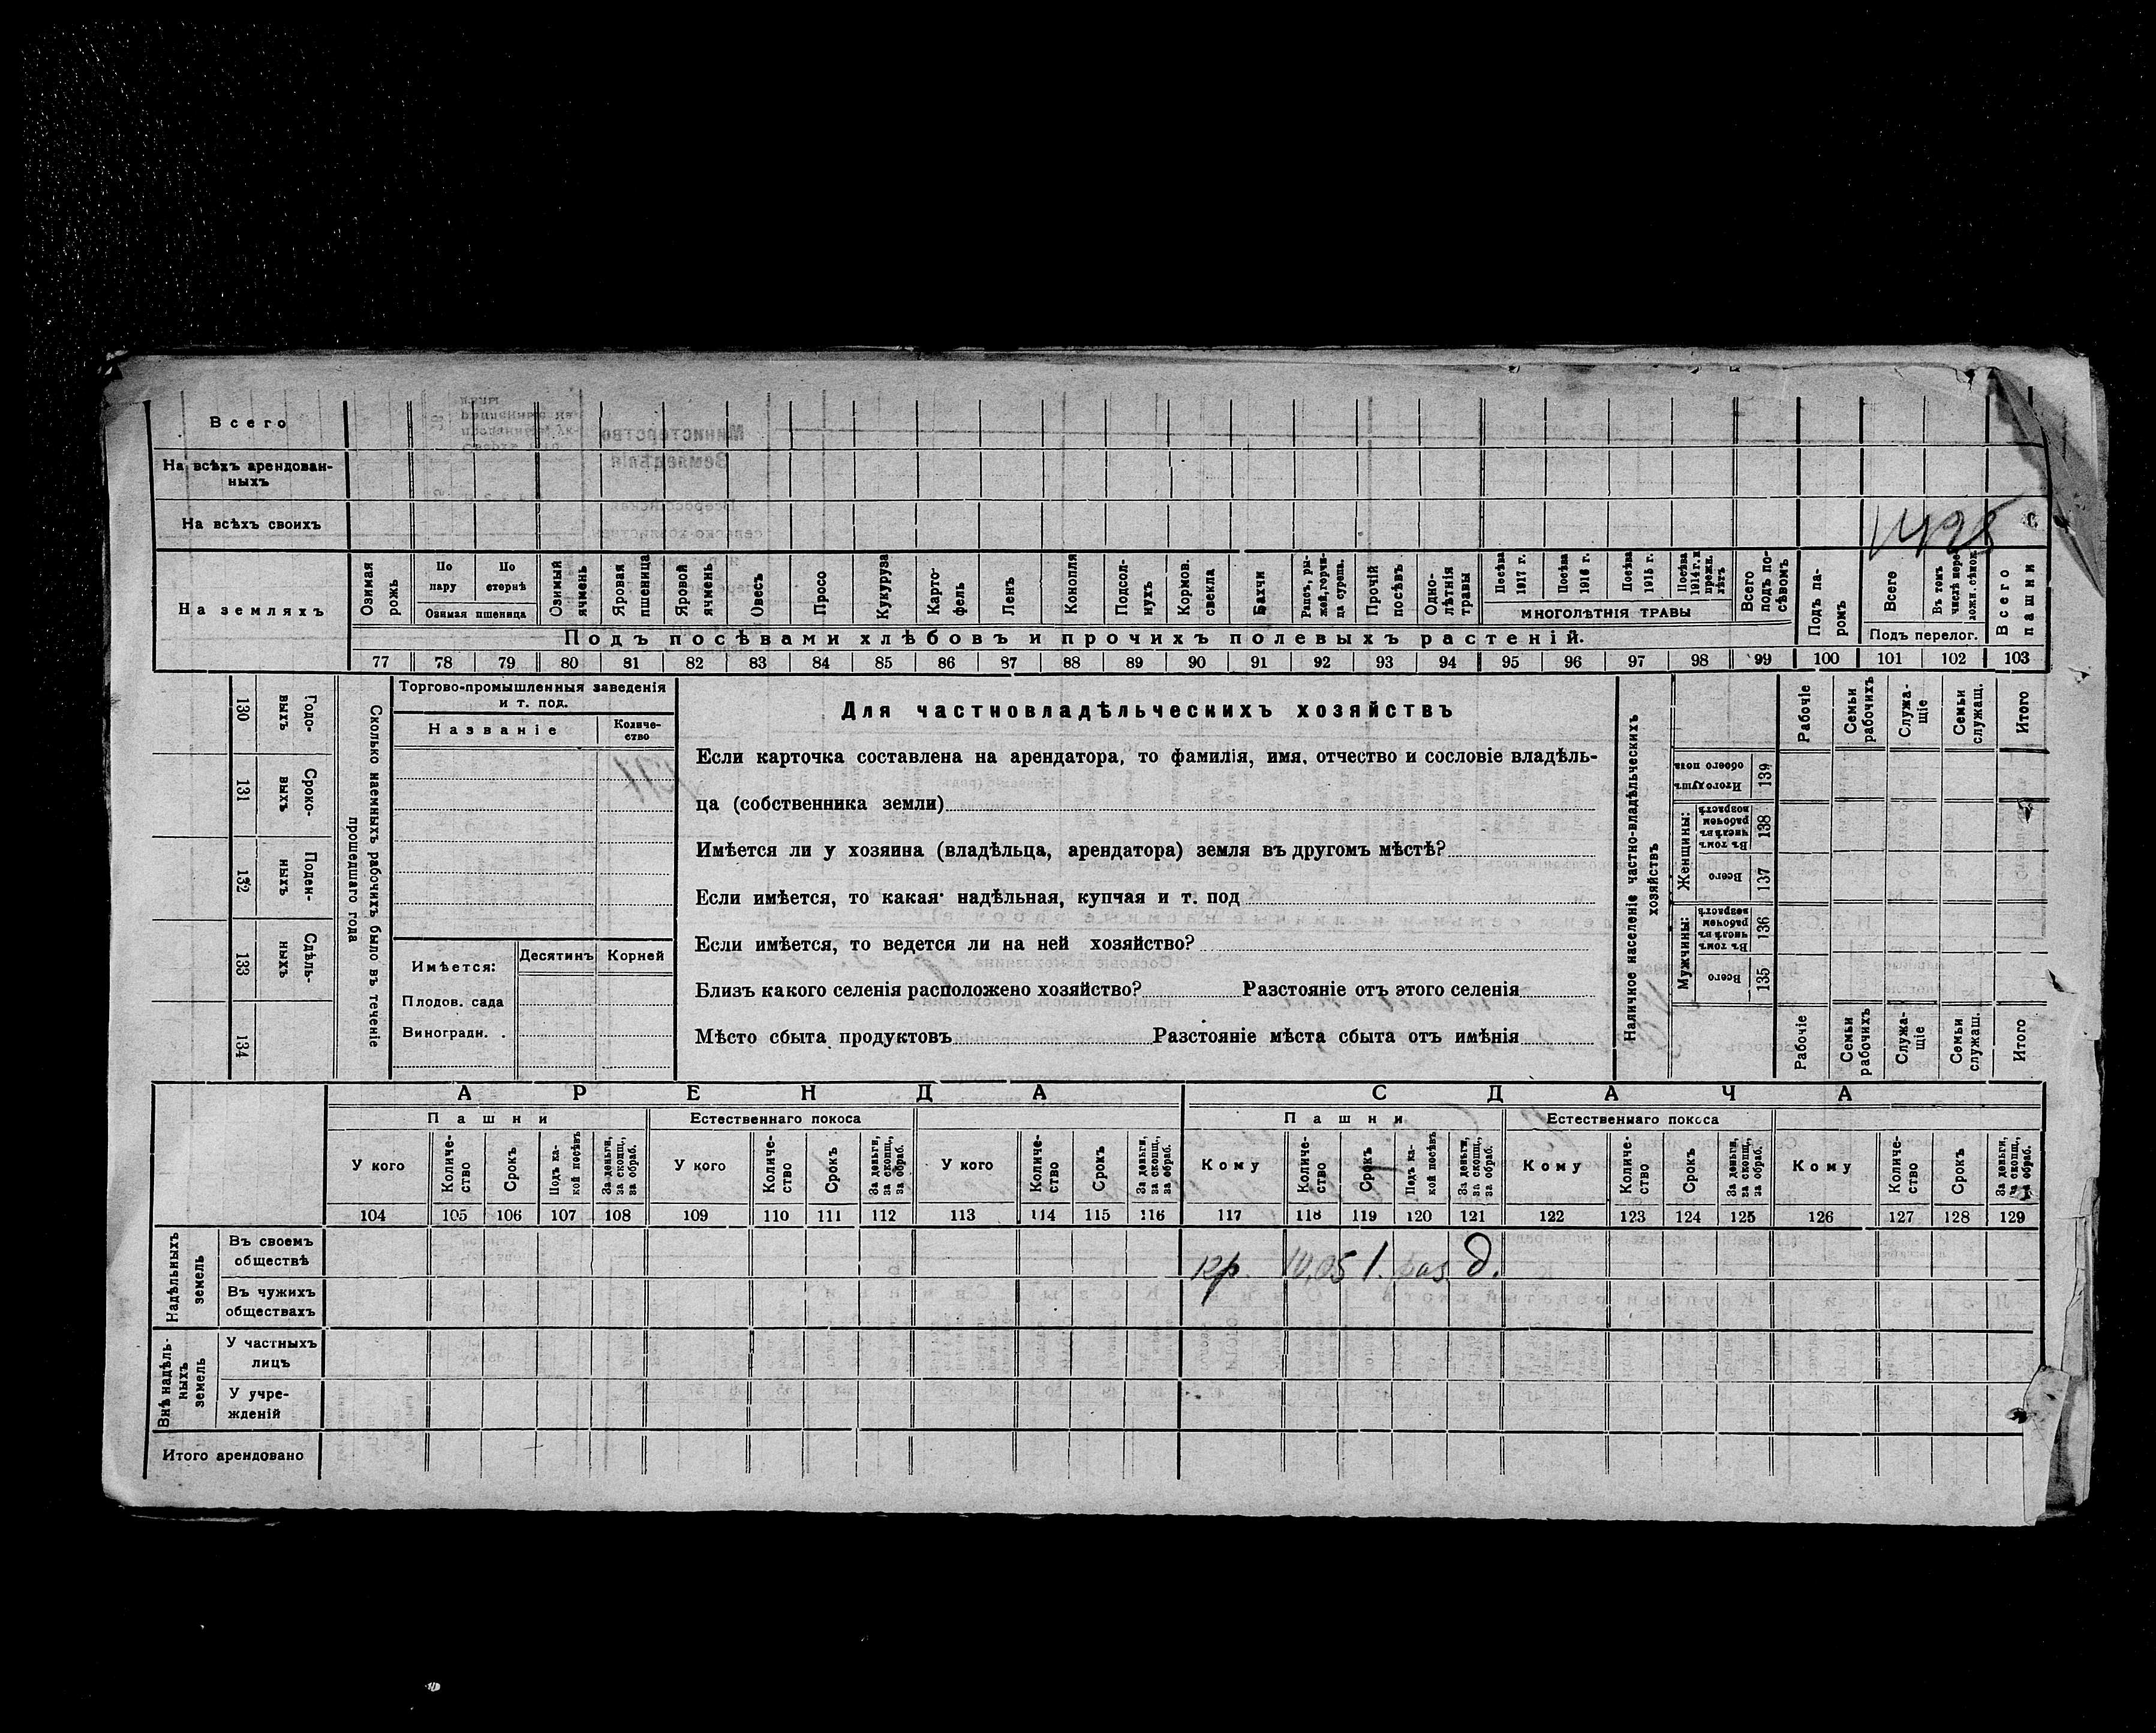 Всего
На всѣхъ арендован-
ныхъ
На всѣхъ своихъ
1498
На земляхъ
Озимая рожь
По пару
По стернѣ
Озимая пшеница
Озимый ячмень
Яровая пшеница
Яровой ячмень
Овесъ
Просо
Кукуруза
Карто-
фель
Ленъ
Конопля
Подсол-
нухъ
Кормов.
свекла
Бахчи
Рапсъ, ры-
жей, горчи-
ца сурепа.
Прочій
посѣвъ
Одно-
лѣтнія
травы
Посѣва
1917 г.
Посѣва
1916 г.
Посѣва
1915 г.
Посѣва
1914 г. и
прежн.
лѣтъ
МНОГОЛѢТНІЯ ТРАВЫ
Всего
подъ по-
сѣвомъ
Подъ па-
ромъ
Всего
Въ томъ
числѣ пере-
ложн. сѣнок.
Подъ перелог.
Всего
пашни
Подъ посѣвами хлѣбовъ и прочихъ полевыхъ растеній.
77 78 79 80 81 82 83 84 85 86 87 88 89 90 91 92 93 94 95 96 97 98 99 100 101 102 103
130 Годо-
выхъ
131 Сроко-
выхъ
132 Поден-
ныхъ
133 Сдѣль-
ныхъ
134
Сколько наемныхъ рабочихъ было въ теченіе
прошедшаго года
Торгово-промышленныя заведенія
и т. под.
Названіе
Количе-
ство
Имѣется:
Десятинъ
Корней
Плодов. сада
Виноградн. .
Для частновладѣльческихъ хозяйствъ
Если карточка составлена на арендатора, то фамилія, имя, отчество и сословіе владѣль-
ца (собственника земли)
Имѣется ли у хозяина (владѣльца, арендатора) земля въ другомъ мѣстѣ?
Если имѣется, то какая надѣльная, купчая и т. под
Если имѣется, то ведется ли на ней хозяйство?
Близъ какого селенія расположено хозяйство? Разстояніе отъ этого селенія
Мѣсто сбыта продуктовъ Разстояніе мѣста сбыта отъ имѣнія
Наличное населеніе частно-владѣльческихъ
хозяйствъ
Рабочіе
Семьи
рабочихъ
Служа-
щіе
Семьи
служащ.
Итого
Итого душъ
обоего пола
139
Женщины:
Въ томъ
числѣ въ
рабочемъ
возрастѣ
138
Всего
137
Мужчины:
Въ томъ
числѣ въ
рабочемъ
возрастѣ
136
Всего
135
Рабочіе
Семьи
рабочихъ
Служа-
щіе
Семьи
служащ.
Итого
АРЕНДА
СДАЧА
Пашни
Естественнаго покоса
Пашни
Естественнаго покоса
У кого
Количе-
ство
Срокъ
Подъ ка-
кой посѣвъ
За деньги,
за скопщ.,
за обраб.
У кого
Количе-
ство
Срокъ
За деньги,
за скопщ.,
за обраб.
У кого
Количе-
ство
Срокъ
За деньги,
за скопщ.,
за обраб.
Кому
Количе-
ство
Срокъ
Подъ ка-
кой посѣвъ
За деньги,
за скопщ.,
за обраб.
Кому
Количе-
ство
Срокъ
За деньги,
за скопщ.,
за обраб.
Кому
Количе-
ство
Срокъ
За деньги,
за скопщ.,
за обраб.
104 105 106 107 108 109 110 111 112 113 114 115 116 117 118 119 120 121 122 123 124 125 126 127 128 129
Надѣльныхъ
земель
Въ своемъ
обществѣ
кр. 10,05 1. раз д.
Въ чужихъ
обществахъ
Внѣ надѣль-
ныхъ
земель
У частныхъ
лицъ
У учре-
жденій
Итого арендовано